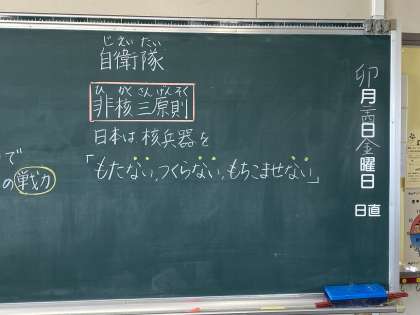 じえいたい
自衛隊
ひかくさんげんそく
非核三原則
日本は核兵器を
「もたない,つくらない,もちこませない」
で
の戦力
卯月
日金曜日
日直